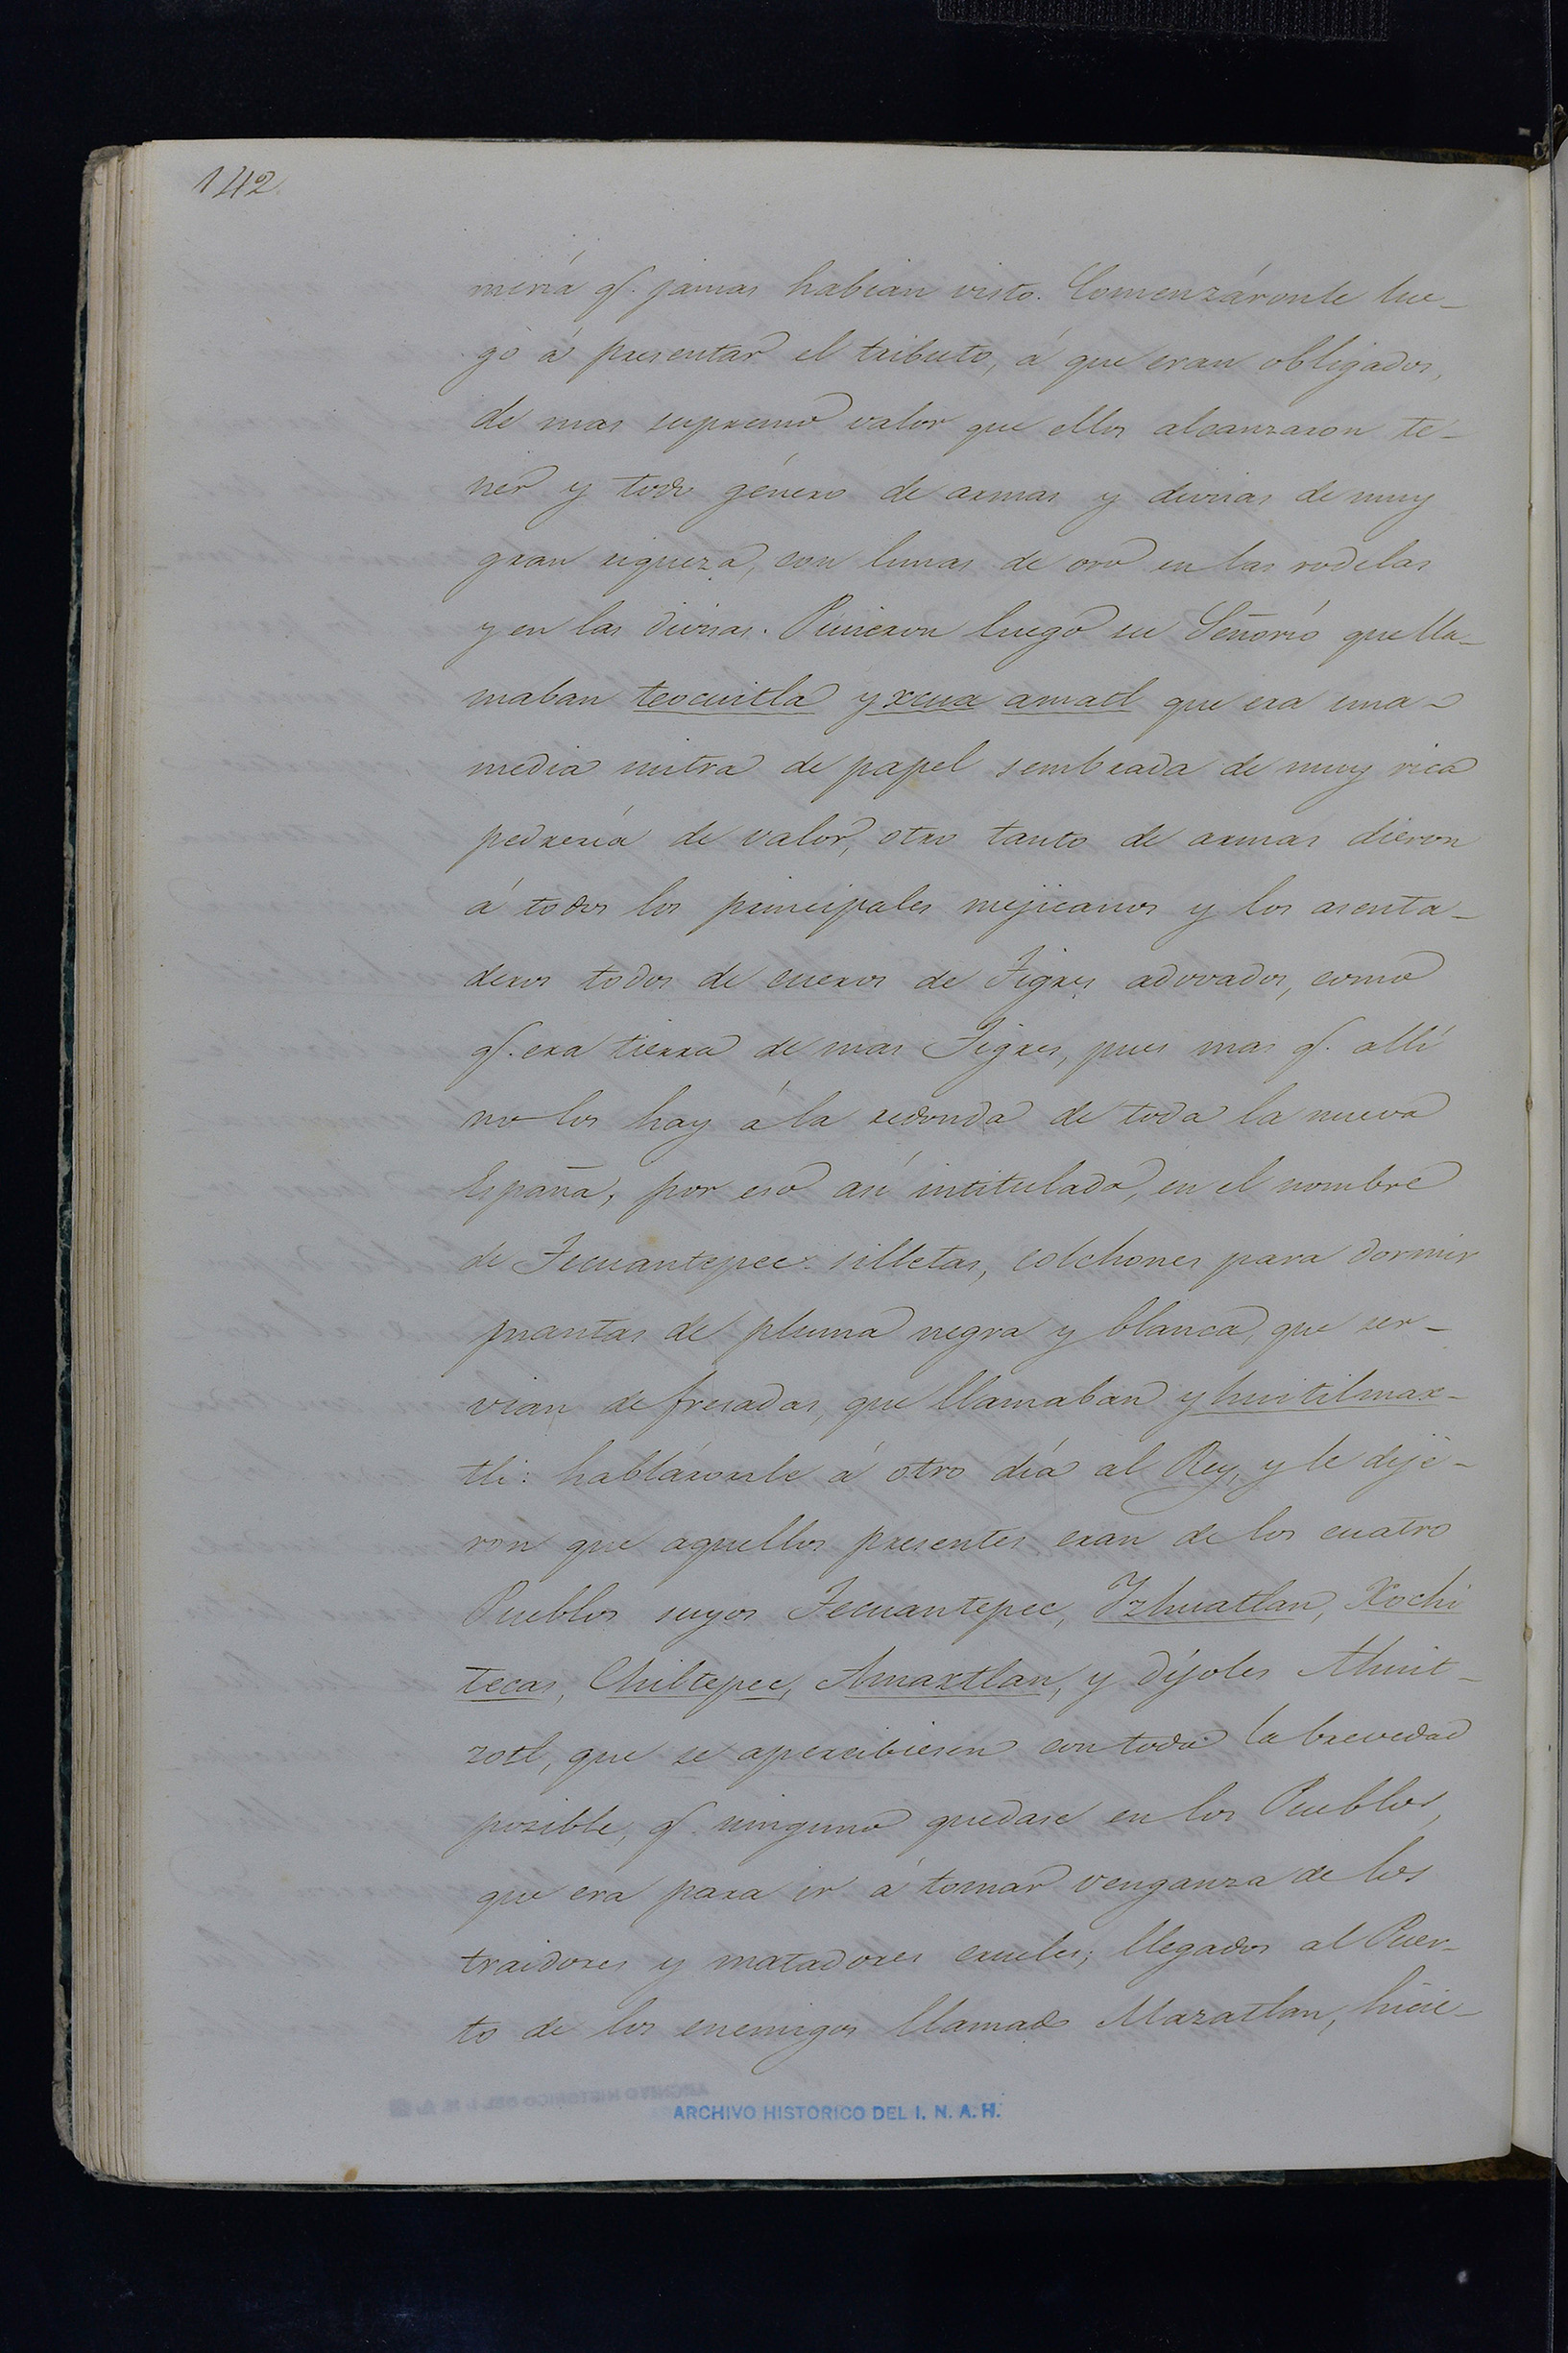 142.
mería qſ. jamas habian visto. Comenzáronle lue-
go á presentar el tributo, á que eran obligados,
de mas supremo valor que ellos alcanzaron te-
ner y todo género de armas y divisas de muy
gran riqueza, con lunas de oro en las rodelas
y en las divisas. Pusieron luego su Señorio que lla-
maban teocuitla yxcua amatl que era una
media mitra de papel sembrada de muy rica
pedreria de valor, otro tanto de armas dieron
á todos los principales mejicanos y los asenta-
deros todos de cueros de Tigres adovados, como
qſ. era tierra de mas Tigres, pues mas qſ. allí
no los hay á la redonda de toda la nueva
España, por eso así intitulado, en el nombre
de Tecuantepec silletas, colchones para dormir
mantas de pluma negra y blanca, que ser-
vian de fresadas, que llamaban yhuitilmax-
tli: habláronle á otro día al Rey, y le dije-
ron que aquellos presentes eran de los cuatro
Pueblos suyos Tecuantepec, Yzhuatlan, Xochi
tecas, Chiltepec, Amaxtlan, y díjoles Ahuit-
zotl, que se apercibiesen con toda la brevedad
posible, qſ. ninguno quedase en los Pueblos,
que era para ir á tomar venganza de los
traidores y matadores crueles; llegados al Puer-
to de los enemigos llamado Mazatlan, hicie-
ARCHIVO HISTORICO DEL I. N. A. H.